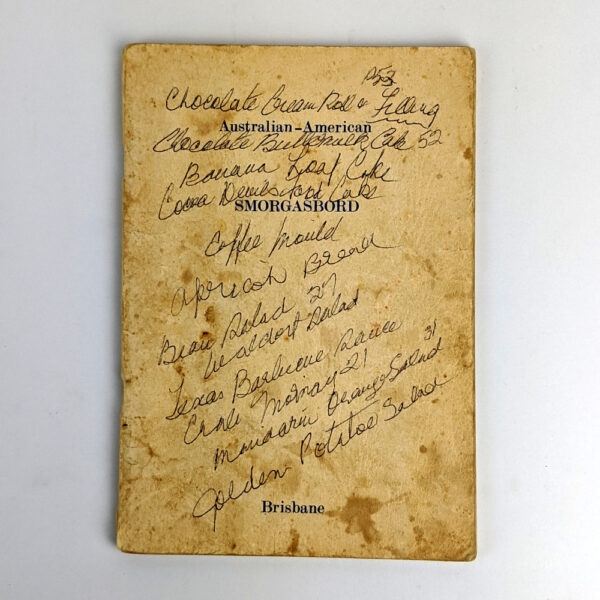 p53
Chocolate Cream Roll & Filling
Australian-American
Chocolate Buttermilk Cake 52
Banana Loaf Cake
Cocoa Devilsfood Cake
SMORGASBORD
Coffee Mould
Apricot Bread
Bean Salad 27
Waldorf Salad
Texas Barbecue Sauce
Crab Mornay 21
Mandarin Orange Salad 31
Golden Potatoe Salad
Brisbane